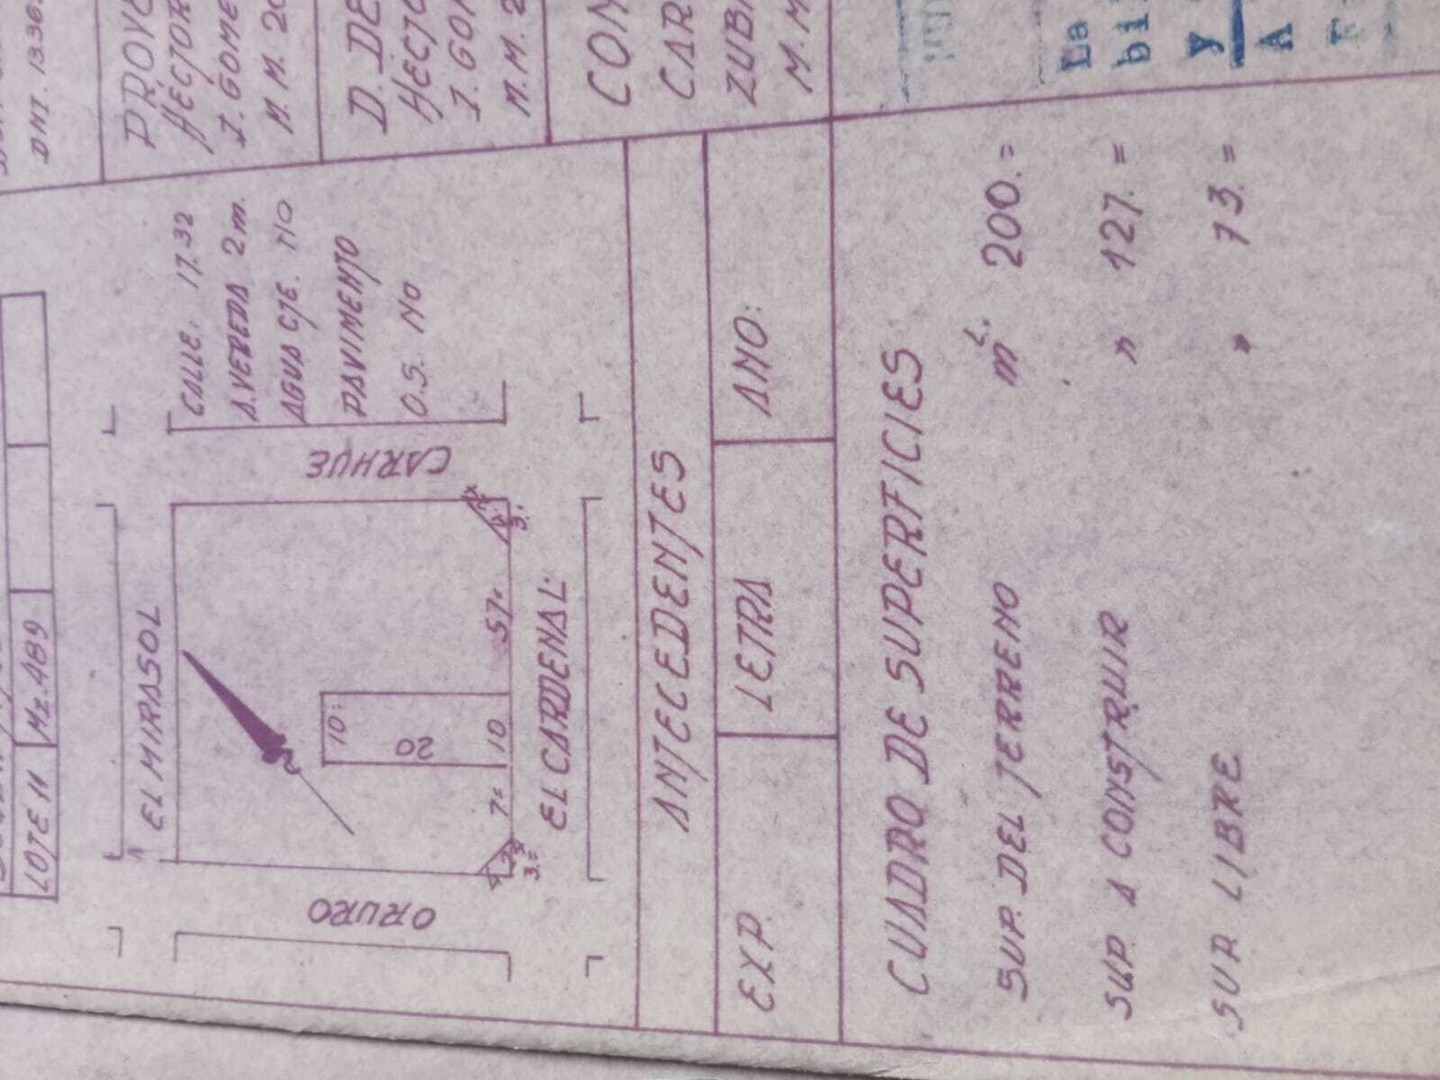 DNI. 1336
PROVE
HÉCTOR
I. GOME
M.M. 20
D. DE
HÉCTO
I. GOM
M.M. 2
CON
CAR
ZUB
M.M
La
bi
y
A
LOTE 11 MZ. 489
CALLE: 17.32
A. VEREDA 2m.
AGUA CTE. NO
PAVIMENTO
O.S. NO
EL MIRASOL
CARHUE
ORURO
EL CARDENAL
10=
20
7= 10 57=
3.=
3.=
ANTECEDENTES
EXP. LETRA AÑO:
CUADRO DE SUPERFICIES
SUP. DEL TERRENO m². 200.=
SUP. A CONSTRUIR " 127.=
SUP LIBRE " 73.=